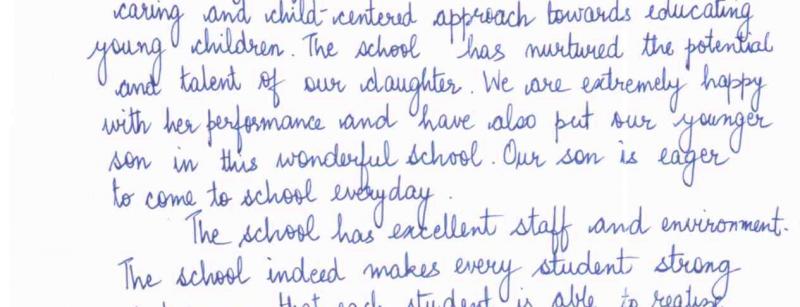 caring and child-centered approach towards educating
young children. The school has nurtured the potential
and talent of our daughter. We are extremely happy
with her performance and have also put our younger
son in this wonderful school. Our son is eager
to come to school everyday.
The school has excellent staff and environment.
The school indeed makes every student strong
that each student is able to realise